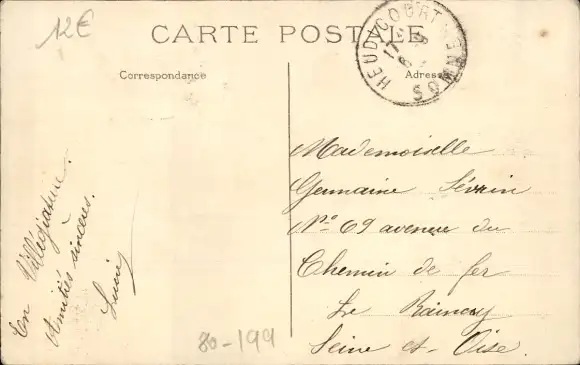 12€
CARTE POSTALE
HEUDICOURT SOMME
17
Correspondance
Adresse
En Villégiature.
Amitiés sincères.
Mademoiselle
Germaine Sévrin
N° 69 avenue du
Chemin de fer
Le Raincy
Seine et-Oise.
80-199